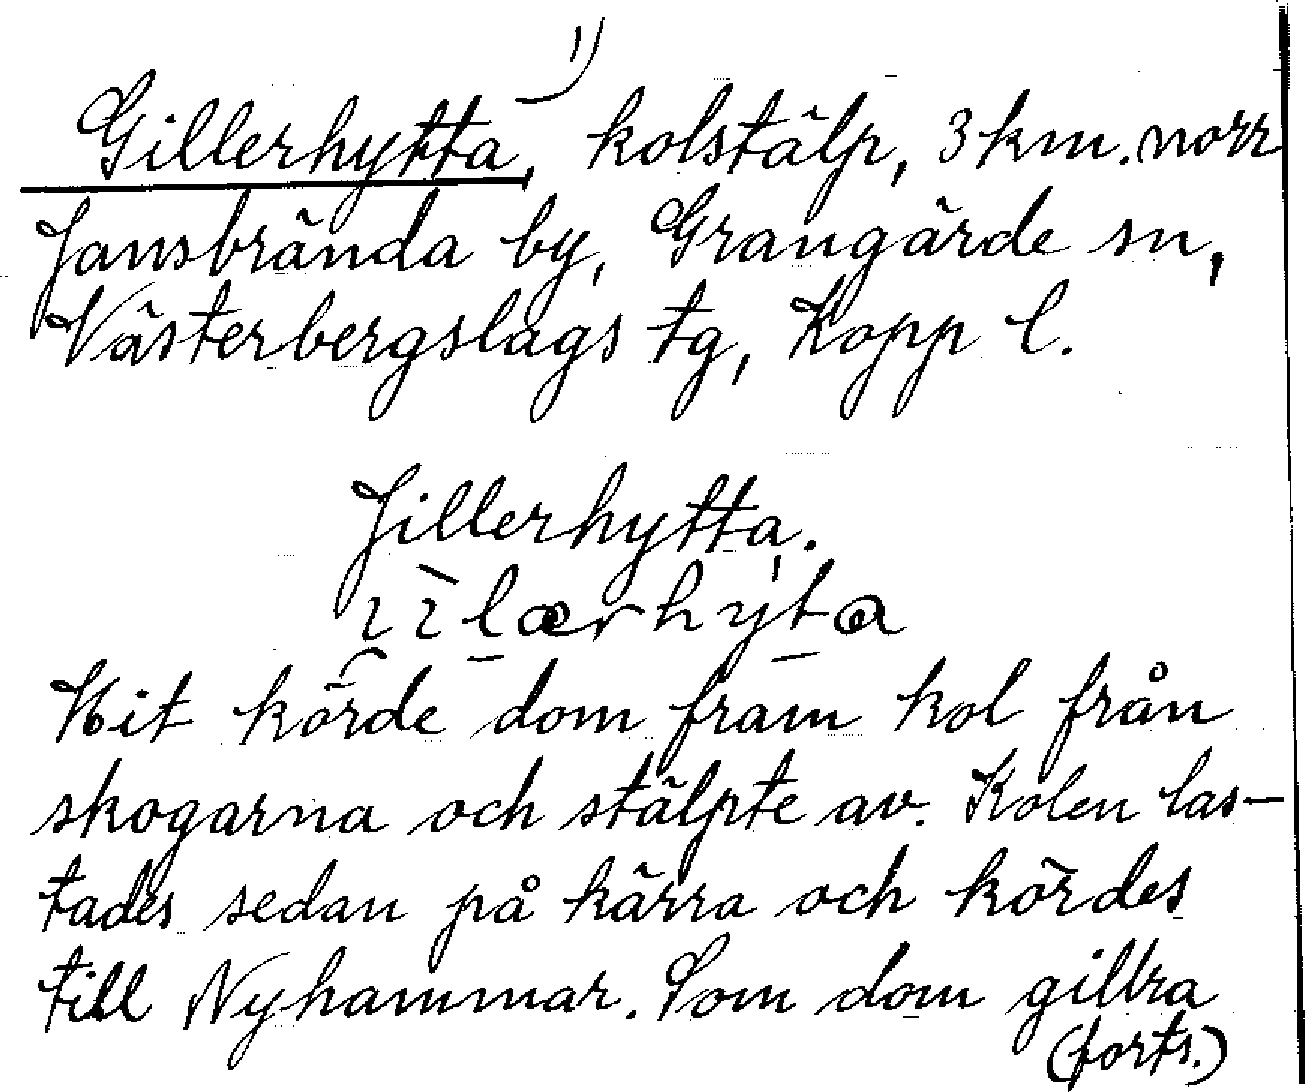 1)
Gillerhytta, kolstälp, 3 km. norr
Jansbrända by, Grangärde sn,
Västerbergslags tg, Kopp l.
Jillerhytta.
Hit körde dom fram kol från
skogarna och stälpte av. Kolen las-
tades sedan på kärra och kördes
till Nyhammar. Som dom gillra
(forts.)